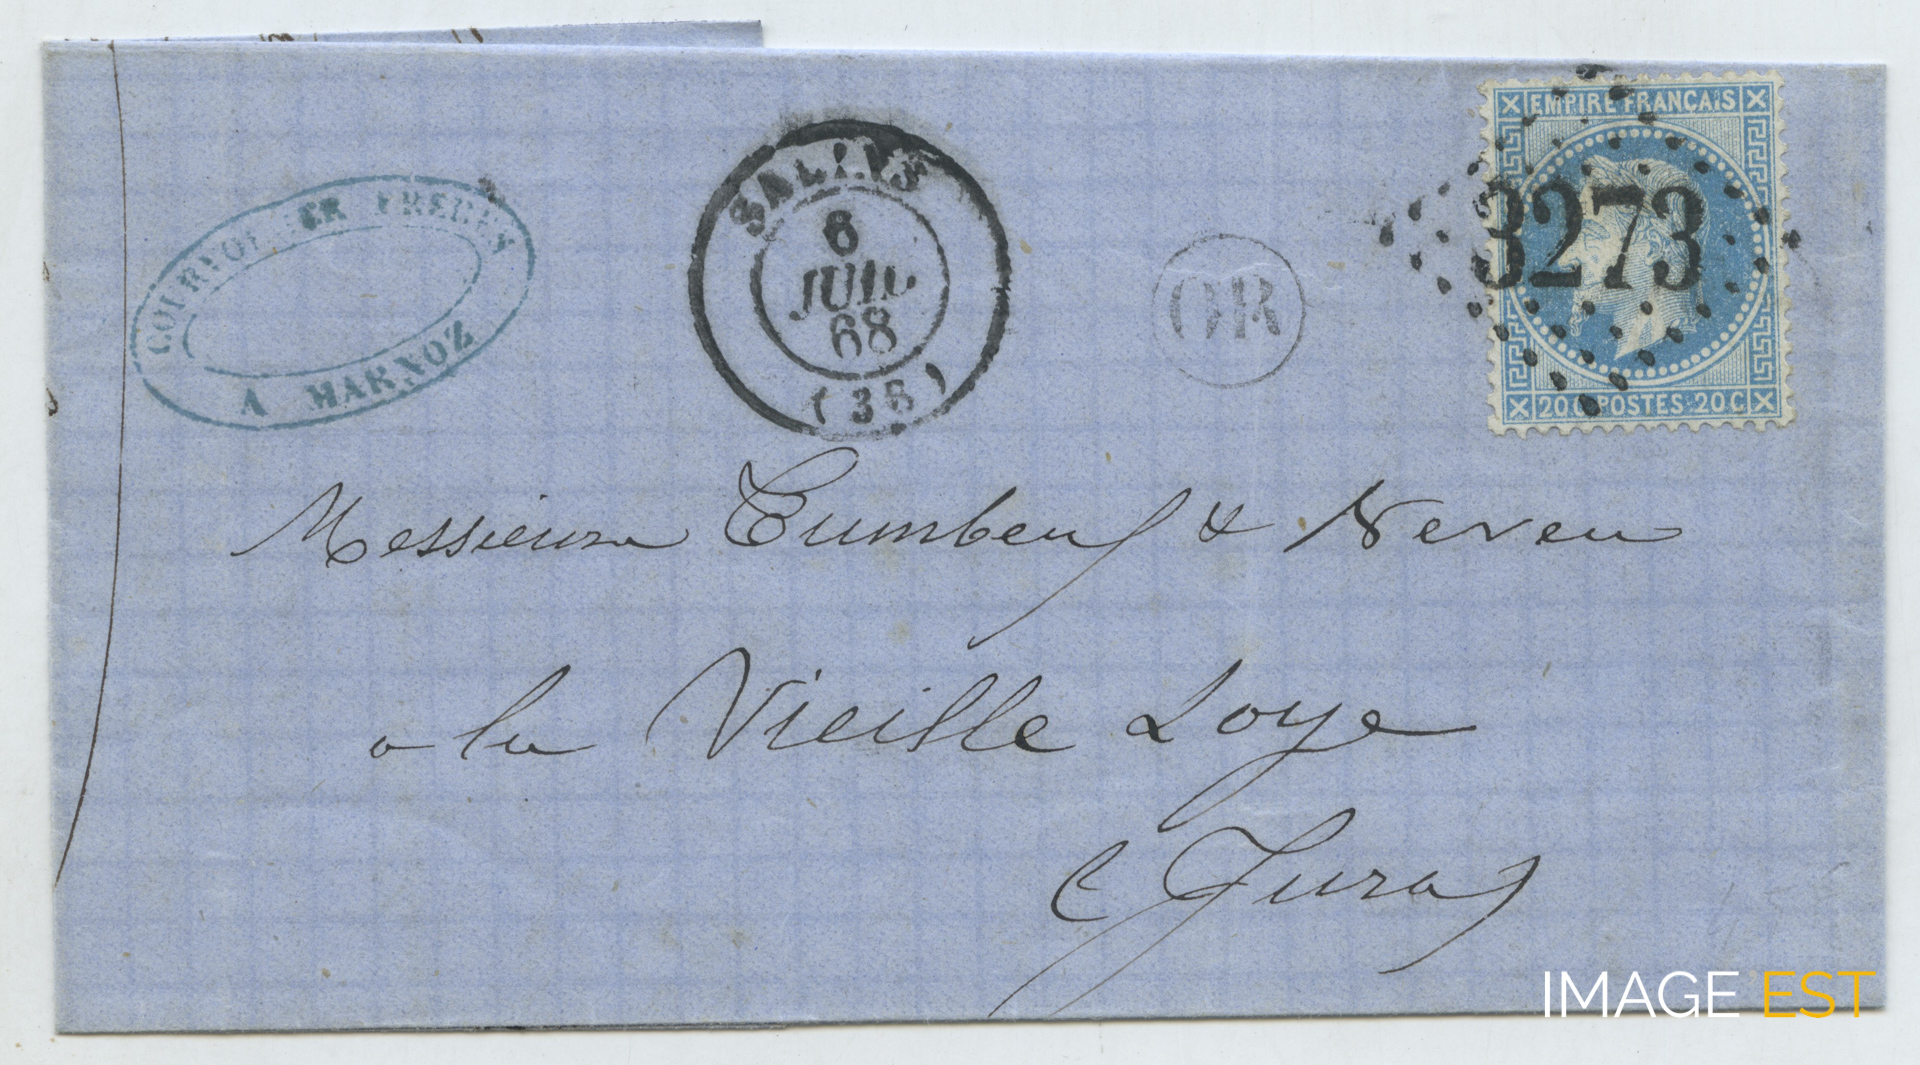 COURVOISIER FRERES
A MARNOZ
SALINS
6
JUIL
68
(38)
OR
EMPIRE FRANÇAIS
3273
20 C POSTES 20 C
Messieurs Tumbeuf & Neveu
a la Vieille Loye
Jura
IMAGE EST